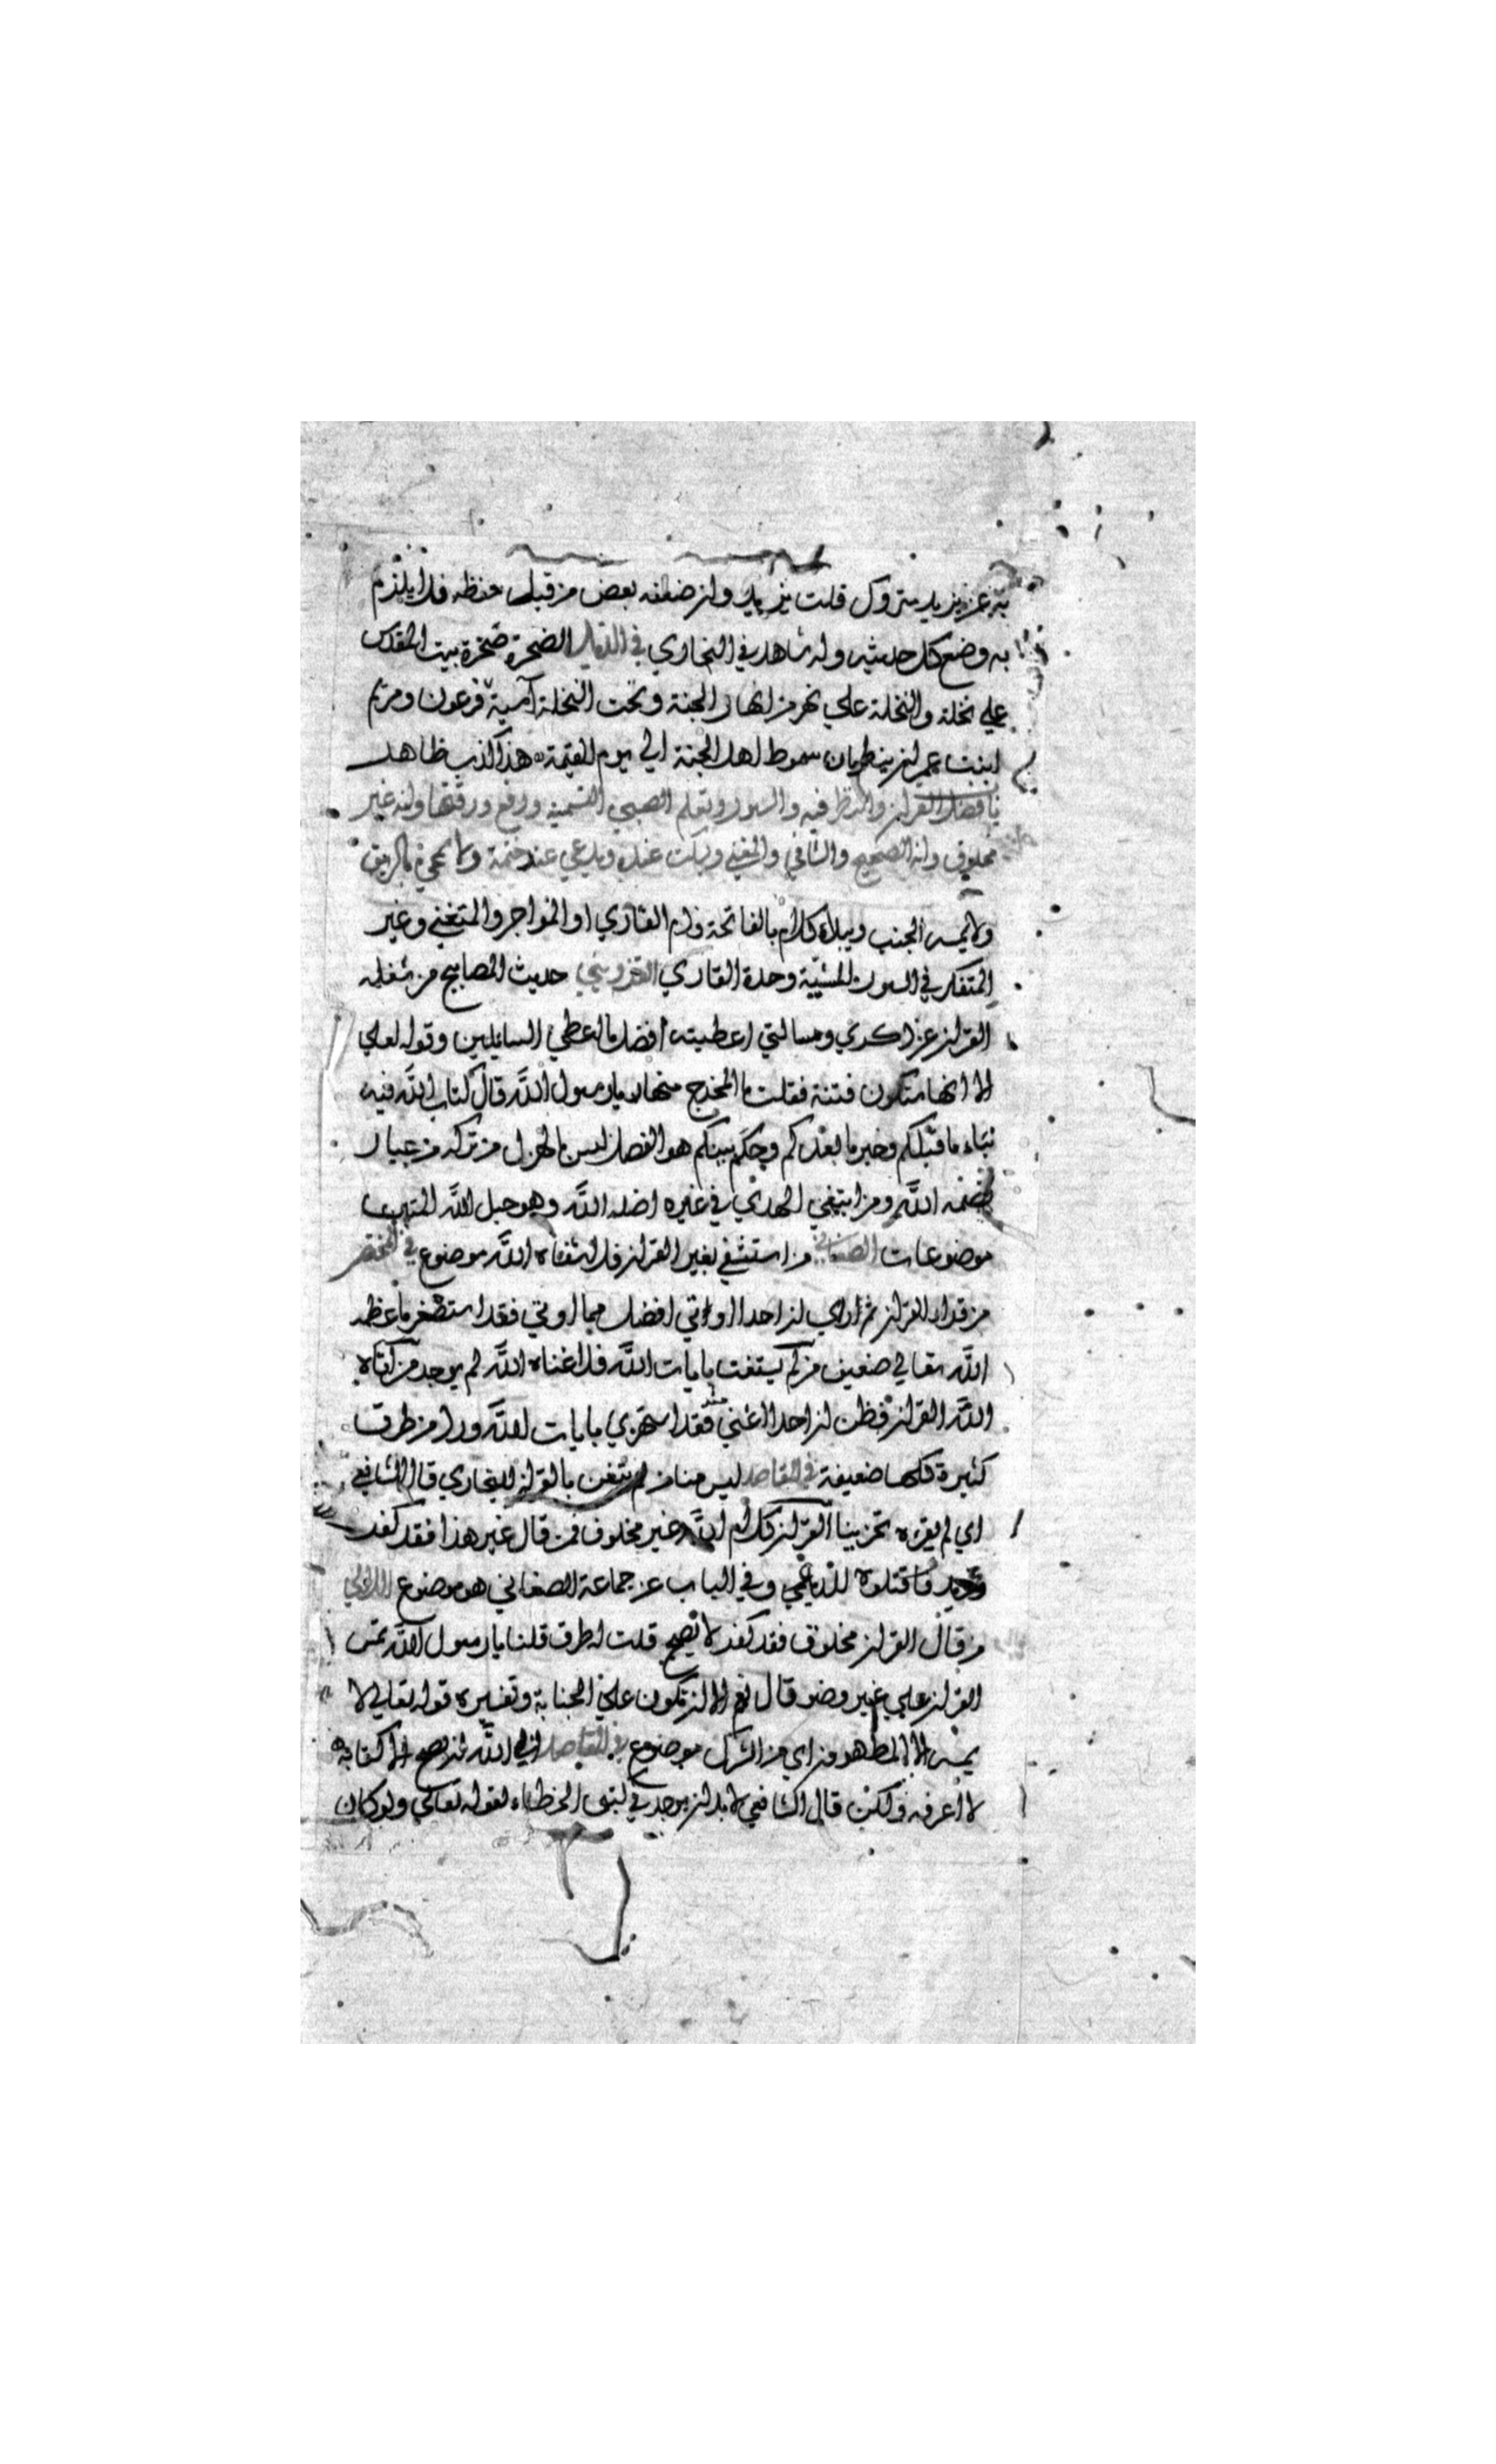 به عن يزيد متروك قلت يزيد وان ضعفه بعض من قبل حفظه فلا يلزم
به وضع كل حديثه وله شاهد في البخاري في الذيل الصخرة صخرة بيت المقدس
علي نخلة والنخلة علي نهر من انهار الجنة وتحت النخلة آسية فرعون ومريم
ابنت عمران ينظمان سموط اهل الجنة الي يوم القيمة هذا كذب ظاهر
باب فضل القران والنظر فيه والسور وتعلم الصبي التسمية ورفع ورقتها وانه غير
مخلوق وانه الصحيح والشافي والمغني ويسكت عنده ويدعي عند ختمة ولا يمحي بالريق
ولا يمسه الجنب ويبدأ كلام بالفاتحة وذم القاري او المواجر والمتغني وغير
المتفكر في السور المشيبة وحدة القاري القزويني حديث المصابيح من شغله
القران عن ذكري ومسالتي اعطيته افضل ما اعطي السايلين وقوله لعلي
الا انها ستكون فتنة فقلت ما المخرج منها يا رسول الله قال كتاب الله فيه
نباء ما قبلكم وخبر ما بعدكم وحكم بينكم هو الفصل ليس بالهزل من تركه من جبار
قصمه الله ومن ابتغي الهدي في غيره اضله الله وهو حبل الله المتين
موضوعات الصغاني من استشفي بغير القران فلا شفاه الله موضوع في المختصر
من قرا القران ثم راي ان احدا اوتي افضل مما اوتي فقد استصغر ما عظم
الله تعالي ضعيف من لم يستغن بايات الله فلا اغناه الله لم يوجد من اتاه
الله القران فظن ان احدا اغني منه فقد استهزي بايات الله ورد من طرق
كثيرة كلها ضعيفة في المقاصد ليس منا من لم يتغن بالقران للبخاري قال الشافعي
اي لم يقره تحزينا القران كلام الله غير مخلوق فمن قال غير هذا فقد كفر
فاقتلوه للديلمي وفي الباب عن جماعة الصغاني هو موضوع اللالي
من قال القران مخلوق فقد كفر لا يصح قلت له طرق قلنا يا رسول الله نمس
القران علي غير وضو قال نعم الا ان تكون علي الجنابة وتفسيره قوله تعالي لا
يمسه الا المطهرون اي من الشرك موضوع في المقاصد ابي الله ان يصح الا كتابه
لا اعرفه ولكن قال الشافعي لابد ان يوجد في كتبي الخطاء لقوله تعالي ولو كان